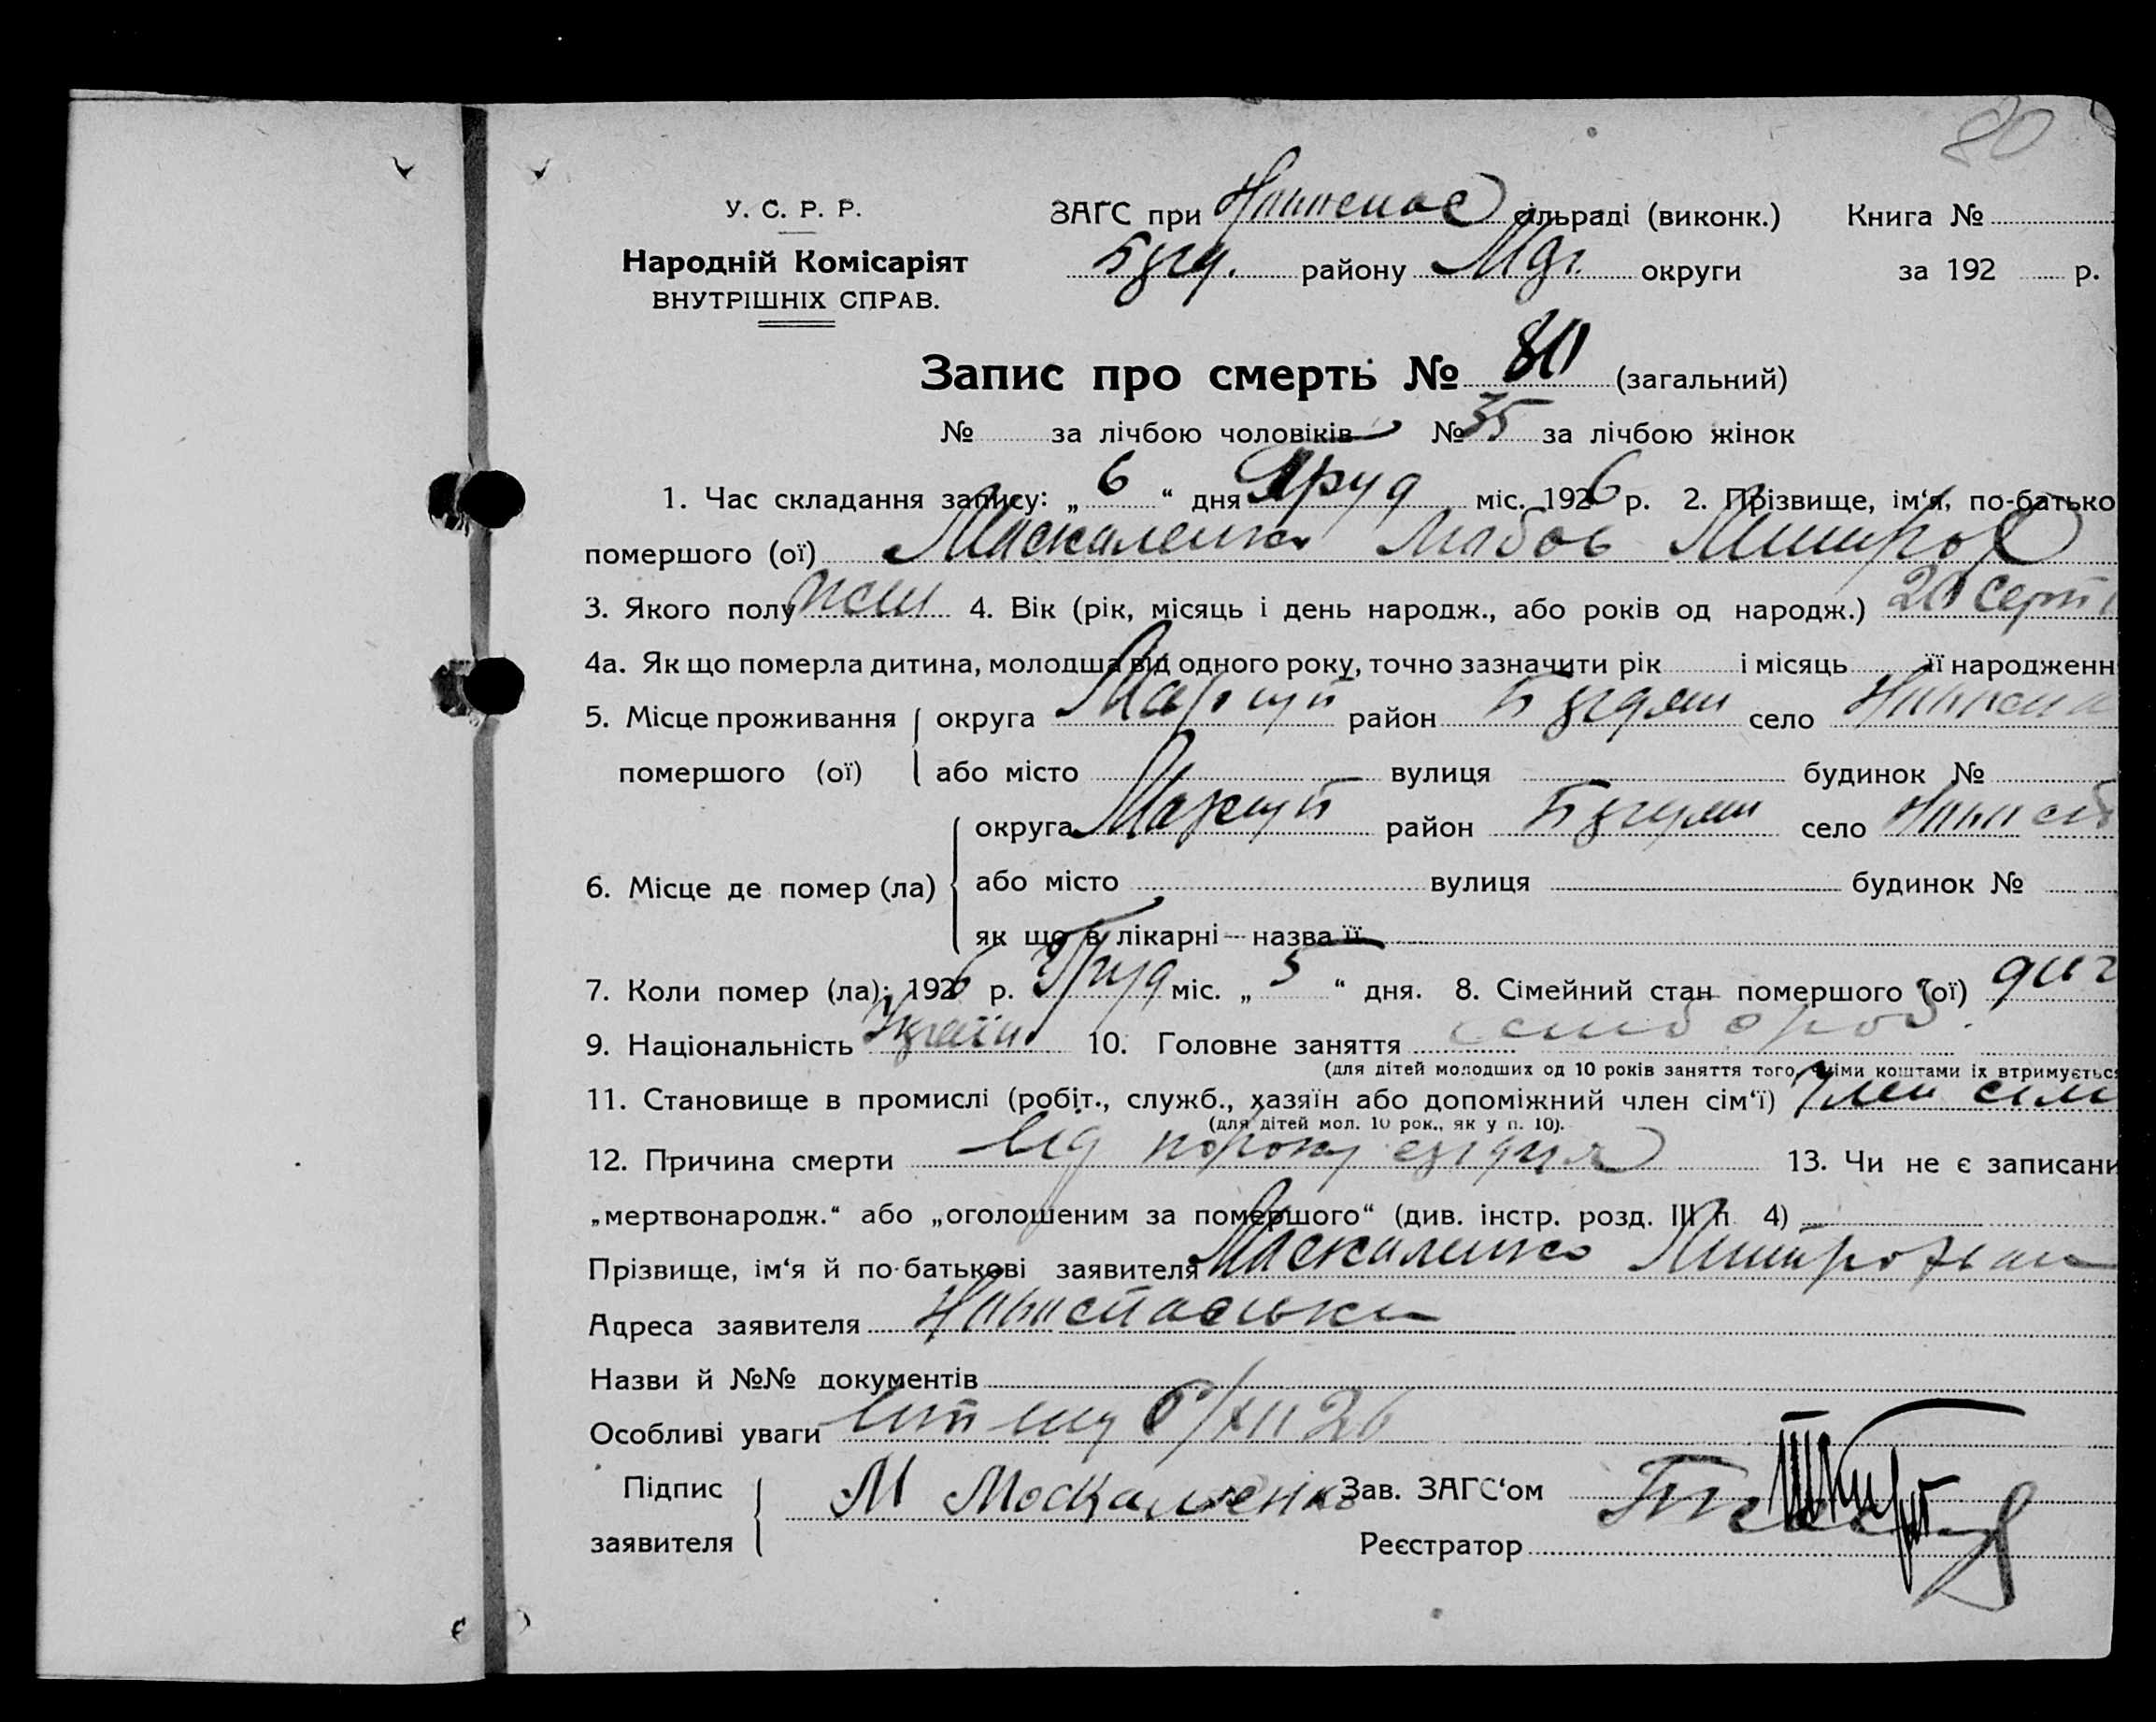 80
У. С. Р. Р.
Народній Комісаріят
ВНУТРІШНІХ СПРАВ.
ЗАГС при сільраді (виконк.) Книга №
району округи за 192 р.
Запис про смерть № 80 (загальний)
№ за лічбою чоловіків № 35 за лічбою жінок
1. Час складання запису: „ 6 “ дня Груд міс. 1926 р. 2. Прізвище, ім‘я, по-батько
помершого (ої) Маскаленко Любов Митроф
3. Якого полу жін 4. Вік (рік, місяць і день народж., або років од народж.) 20
4а. Як що померла дитина, молодша від одного року, точно зазначити рік і місяць її народженн
5. Місце проживання округа Маріуп район село
помершого (ої) або місто вулиця будинок №
округа Маріуп район село
6. Місце де помер (ла) або місто вулиця будинок №
як що в лікарні — назва її
7. Коли помер (ла): 1926 р. Груд міс. „ 5 “ дня. 8. Сімейний стан помершого (ої)
9. Національність Україн 10. Головне заняття
(для дітей молодших од 10 років заняття того, чиїми коштами їх втримується
11. Становище в промислі (робіт., служб., хазяїн або допоміжний член сім‘ї) Член сім
(для дітей мол. 10 рок., як у п. 10).
12. Причина смерти Від пороку сердця 13. Чи не є записани
„мертвонародж.“ або „оголошеним за помершого“ (див. інстр. розд. III п. 4)
Прізвище, ім‘я й по-батькові заявителя Маскаленко Митрофан
Адреса заявителя
Назви й №№ документів
Особливі уваги 6/XII 26
Підпис
заявителя М Москаленко Зав. ЗАГС‘ом
Реєстратор